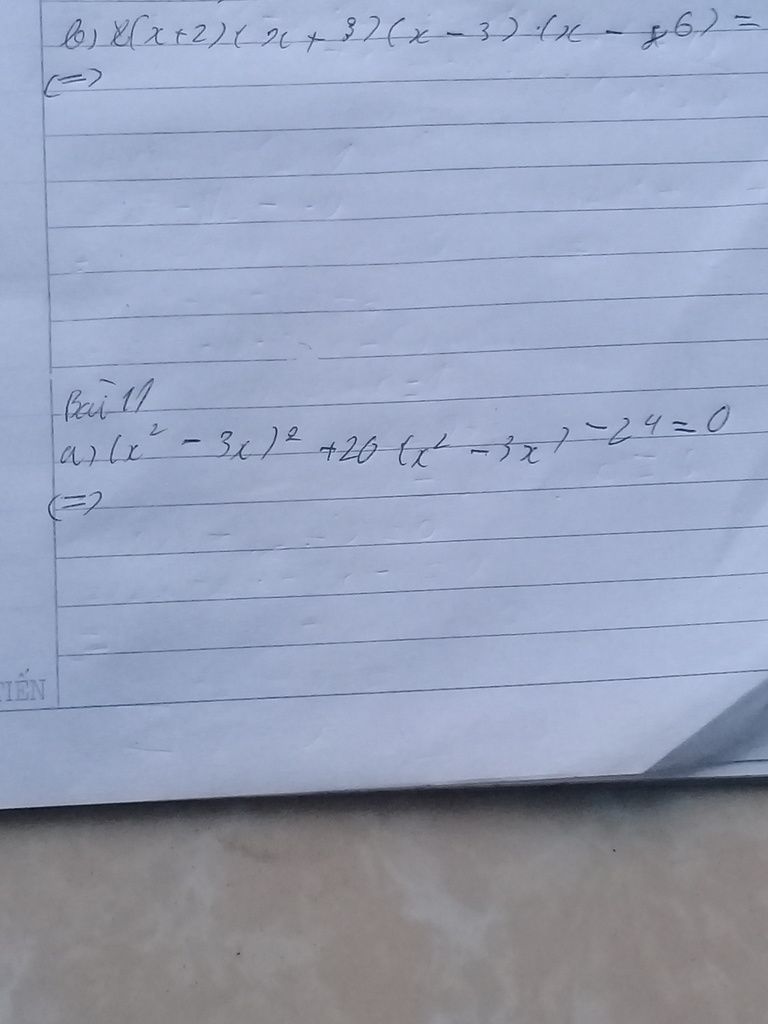 b) (x+2)(x+3)(x-3).(x-6)=
(=)
Bài 11
a) (x² - 3x)² +26 (x² - 3x) -24=0
(=)
TIẾN